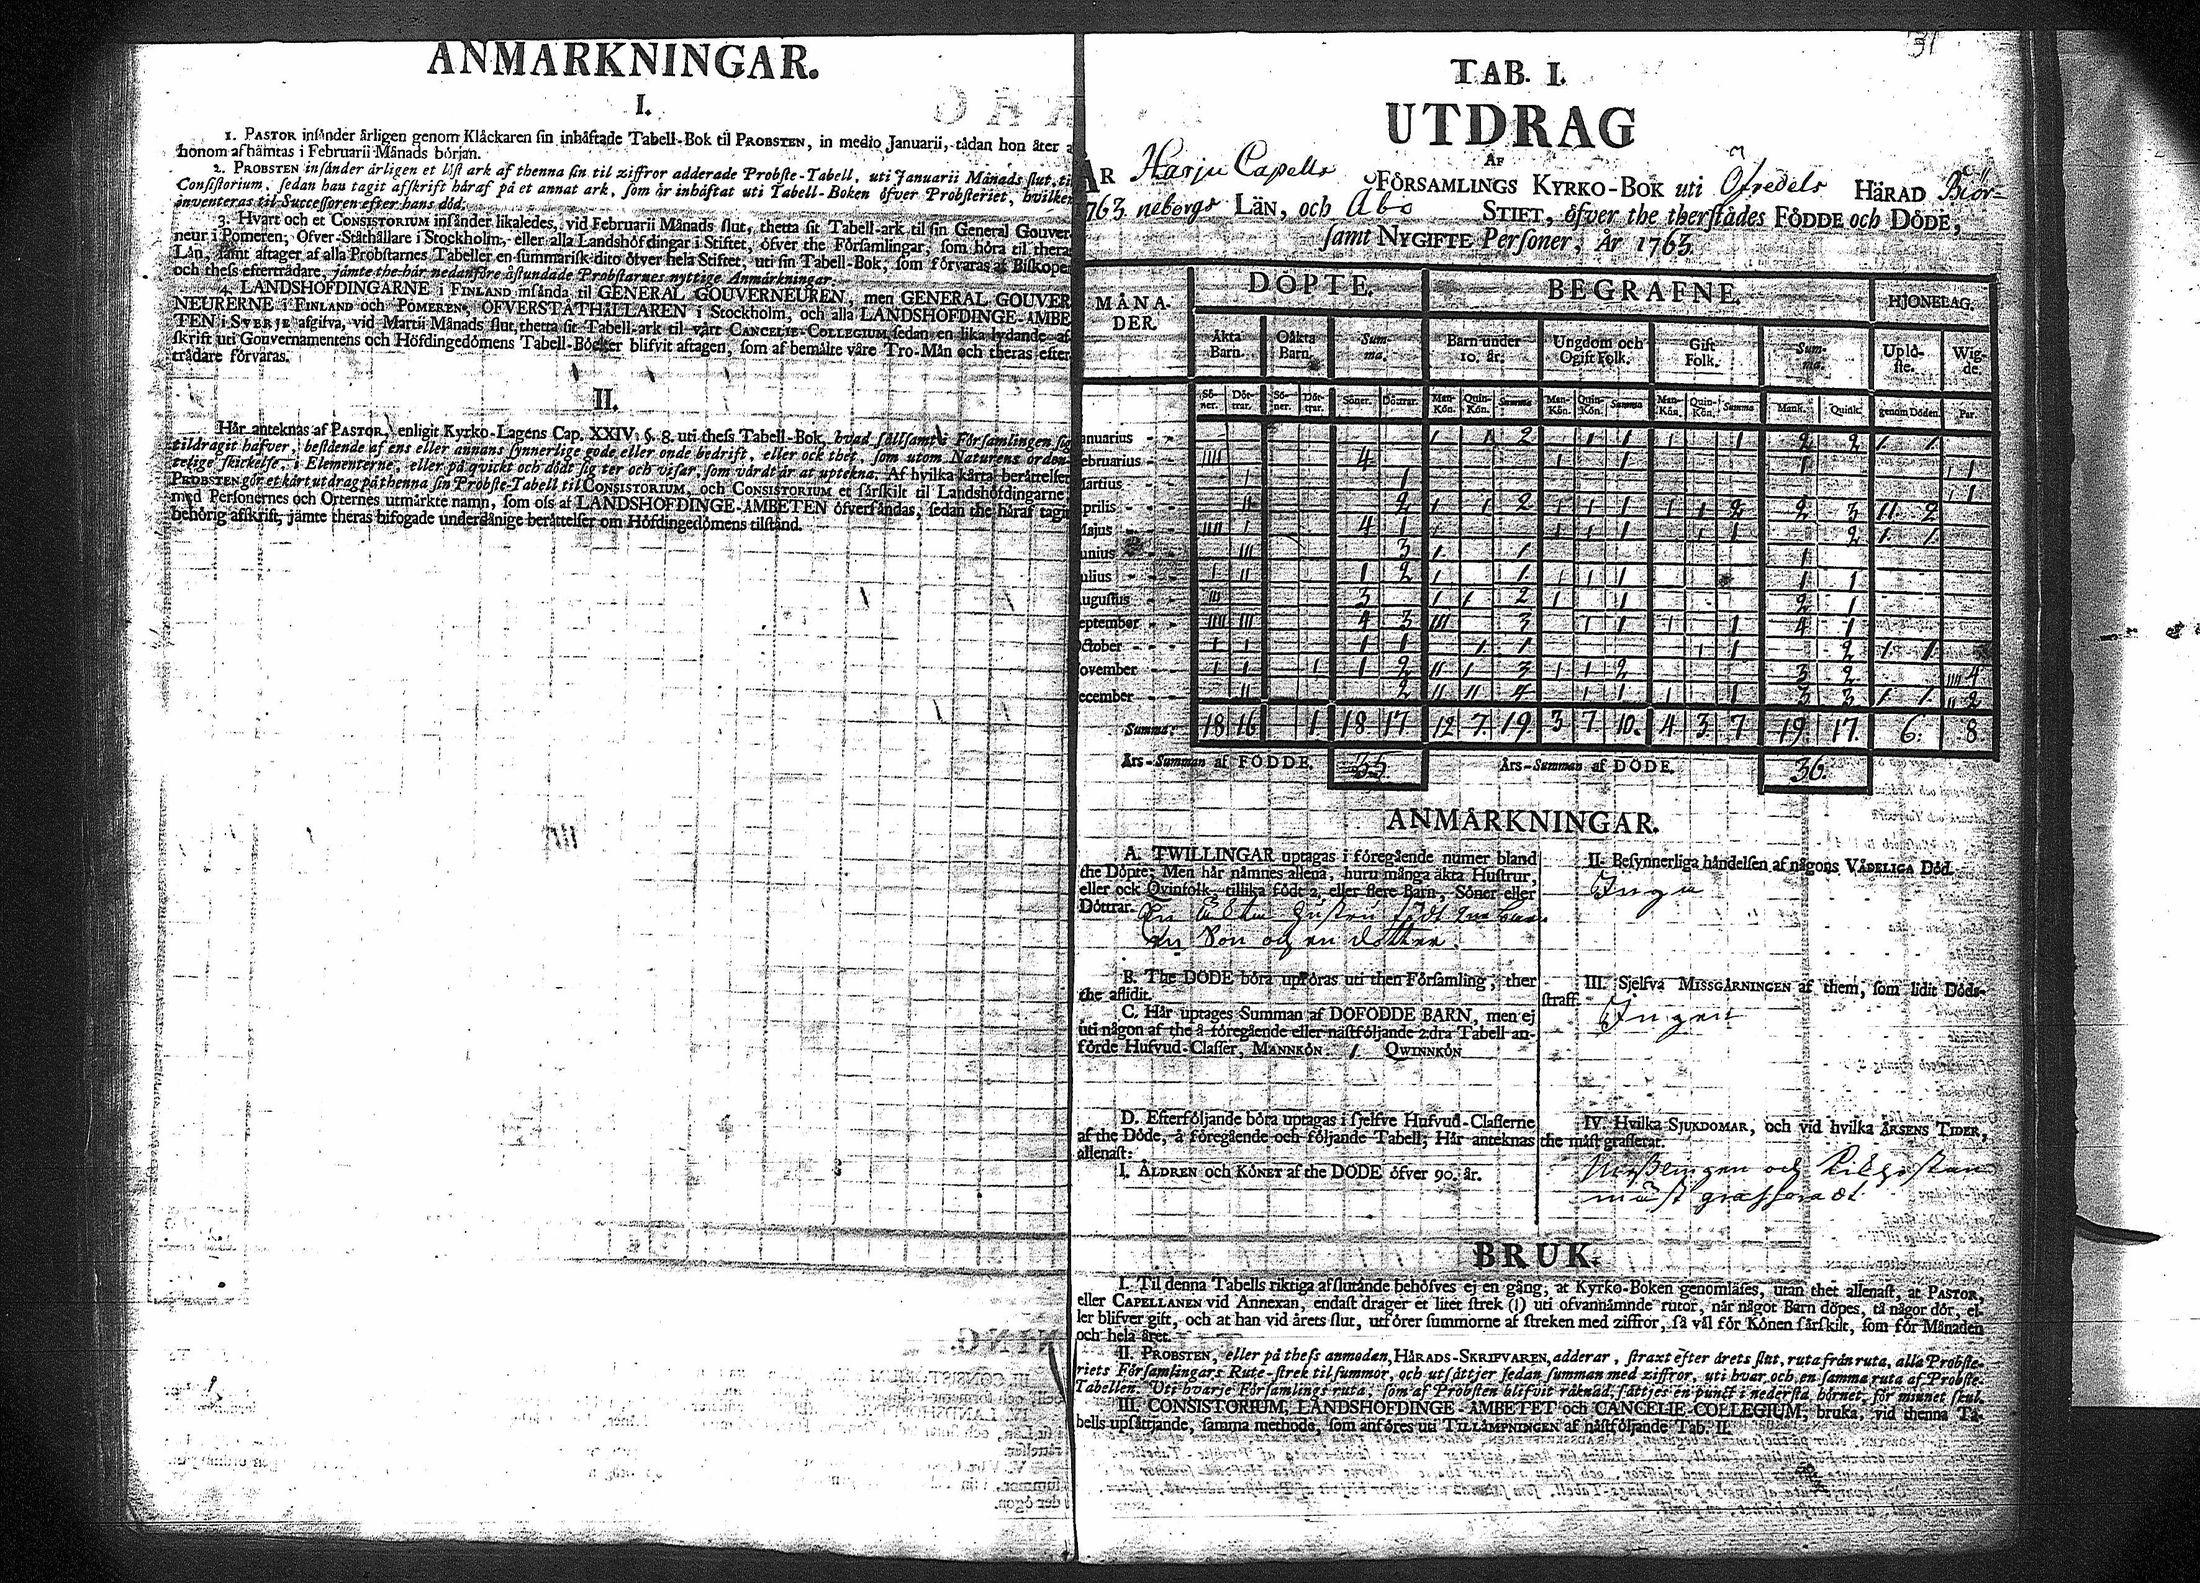 ANMÄRKNINGAR.
I.
1. PASTOR insånder årligen genom Klåckaren sin inhåftade Tabell-Bok til PROBSTEN, in medio Januarii, tådan hon åter
honom afhåmtas i Februarii Månads början.
2. PROBSTEN insånder årligen et löst ark af thenna sin til ziffror adderade Probste-Tabell, uti Januarii Månads slut, til
Consistorium, sedan han tagit afskrift håraf på et annat ark, som år inhåftat uti Tabell-Boken öfver Probsteriet, hvilken
inventeras til Successoren efter hans död.
3. Hvart och et CONSISTORIUM insånder likaledes, vid Februarii Månads slut, thetta sit Tabell-ark til sin General Gouver-
neur i Pomeren, Öfver-Ståthållare i Stockholm, eller alla Landshöfdingar i Stiftet, öfver the Församlingar, som höra til thera
Lån, samt aftager af alla Probstarnes Tabeller en summarisk dito öfver hela Stiftet, uti sin Tabell-Bok, som förvaras af Biskopen
och thess efterträdare, jämte the hår nedanföre åstundade Probstarnes nyttige Anmårkningar.
4. LANDSHÖFDINGARNE i FINLAND insånda til GENERAL GOUVERNEUREN, men GENERAL GOUVER-
NEURERNE i FINLAND och POMEREN, ÖFVERSTÅTHÅLLAREN i Stockholm, och alla LANDSHÖFDINGE-ÄMBE-
TEN i SVERJE afgifva, vid Martii Månads slut, thetta sit Tabell-ark til vårt CANCELIE-COLLEGIUM, sedan en lika lydande af-
skrift uti Gouvernamentens och Höfdingedömens Tabell-Böcker blifvit aftagen, som af bemålte våre Tro-Mån och theras efter-
trådare förvaras.
II.
Hår anteknas af PASTOR, enligit Kyrko-Lagens Cap. XXIV. §. 8. uti thess Tabell-Bok, hvad sållsamt i Församlingen sig
tildragit hafver, bestående af ens eller annans synnerlige gode eller onde bedrift, eller ock thet, som utom Naturens orden-
telige skickelse, i Elementerne, eller på qvickt och dödt sig ter och visar, som vårdt år at uptekna. Af hvilka kårta beråttelser
PROBSTEN gör et kårt utdrag på thenna sin Probste-Tabell til CONSISTORIUM, och CONSISTORIUM et sårskilt til Landshöfdingarne,
med Personernes och Orternes utmårkte namn, som oss af LANDSHÖFDINGE-ÄMBETEN öfversåndas, sedan the håraf tagit
behörig afskrift, jämte theras bifogade underdånige beråttelser om Höfdingedömens tilstånd.
31
TAB. I.
UTDRAG
AF
ÅR Harju Capells FÖRSAMLINGS KYRKO-BOK uti Öfredels HÄRAD Biör-
1763 neborgs LÄN, och Åbo STIFT, öfver the therstådes FÖDDE och DÖDE,
samt NYGIFTE Personer, År 1763
MÅNADER. DÖPTE. BEGRAFNE. HJONELAG.
Äkta Barn. Oäkta Barn. Summa. Barn under 10. år. Ungdom och Ogift Folk. Gift Folk. Summa. Uplöste. Wigde.
Söner. Döttrar. Söner. Döttrar. Söner. Döttrar. Man-Kön. Quin-Kön. Summa Man-Kön. Quin-Kön. Summa Man-Kön. Quin-Kön. Summa Mank. Quink. genom Döden. Par
Januarius - - 1 1 2 1 1 1 2 2 1. 1.
Februarius - - IIII 4 1 1 1 1 1
Martius - - 1 1 1 1
Aprilis - - II 2 1 1 2 1 1 1 1 1 2 2 3 II 2
Majus - - IIII 1 4 1 1 1 1 1 1 2 1. 1.
Junius - - III 3 1. 1 1
Julius - - 1 II 1 2 1 1 1 1 1 1 1
Augustus - - III 3 1 1 2 1 1 2 1
September - - IIII III 4 3 III 3 1 1 1 1 4 1
October - - 1 1 1 1 1 1 1 1 2 1. 1.
November - - 1 1 1 1 2 II 1 3 1 1 2 3 2 IIII 4
December - - II 2 II II 4 1 1 1 1 3 3 1. 1. II 2
Summa: 18 16 1 18 17 12 7. 19 3 7 10. 4 3 7 19. 17. 6. 8
Års-Summan af FÖDDE. 35 Års-Summan af DÖDE. 36.
ANMÄRKNINGAR.
A. TWILLINGAR uptagas i föregående numer bland
the Döpte; Men hår nåmnes allena, huru många åkta Hustrur,
eller ock Qvinfolk, tillika födt 2, eller flere Barn, Söner eller
Döttrar. En Ächta Hustru födt 2ne barn
en Son och en dotter.
B. The DÖDE böra upföras uti then Församling, ther
the aflidit.
C. Hår uptages Summan af DÖFÖDDE BARN, men ej
uti någon af the å föregående eller nåstföljande 2:dra Tabell an-
förde Hufvud-Classer, MANNKÖN. 1. QWINNKÖN
D. Efterföljande böra uptagas i sjelfve Hufvud-Classerne
af the Döde, å föregående och följande Tabell; Hår anteknas
allenast:
I. ÅLDREN och KÖNET af the DÖDE öfver 90. år.
II. Besynnerliga håndelsen af någons VÅDELIGA Död.
Inga
III. Sjelfva MISSGÄRNINGEN af them, som lidit Döds-
straff.
Ingen
IV. Hvilka SJUKDOMAR, och vid hvilka ÅRSENS TIDER,
the måst grasserat.
Messlingen och Kikhostan
mäst grasserat
BRUK.
I. Til denna Tabells riktiga afslutånde behöfves ej en gång, at Kyrko-Boken genomlåses, utan thet allenast, at PASTOR,
eller CAPELLANEN vid Annexan, endast drager et litet strek (1) uti ofvannåmnde rutor, når något Barn döpes, tå någor dör, el-
ler blifver gift, och at han vid årets slut, utförer summorne af streken med ziffror, så vål för Könen sårskilt, som för Månaden
och hela året.
II. PROBSTEN, eller på thess anmodan, HÄRADS-SKRIFVAREN, adderar, straxt efter årets slut, ruta från ruta, alla Probste-
riets Församlingars Rute-strek til summor, och utsåttjer sedan summan med ziffror, uti hvar och en samma ruta af Probste-
Tabellen. Uti hvarje Församlings ruta, som af Probsten blifvit råknad, såttjes en punct i nedersta hörnet, för minnet skul.
III. CONSISTORIUM, LANDSHÖFDINGE-ÄMBETET och CANCELIE-COLLEGIUM, bruka, vid thenna Ta-
bells upsåttjande, samma methode, som anföres uti TILLÅMPNINGEN af nåstföljande Tab. II.